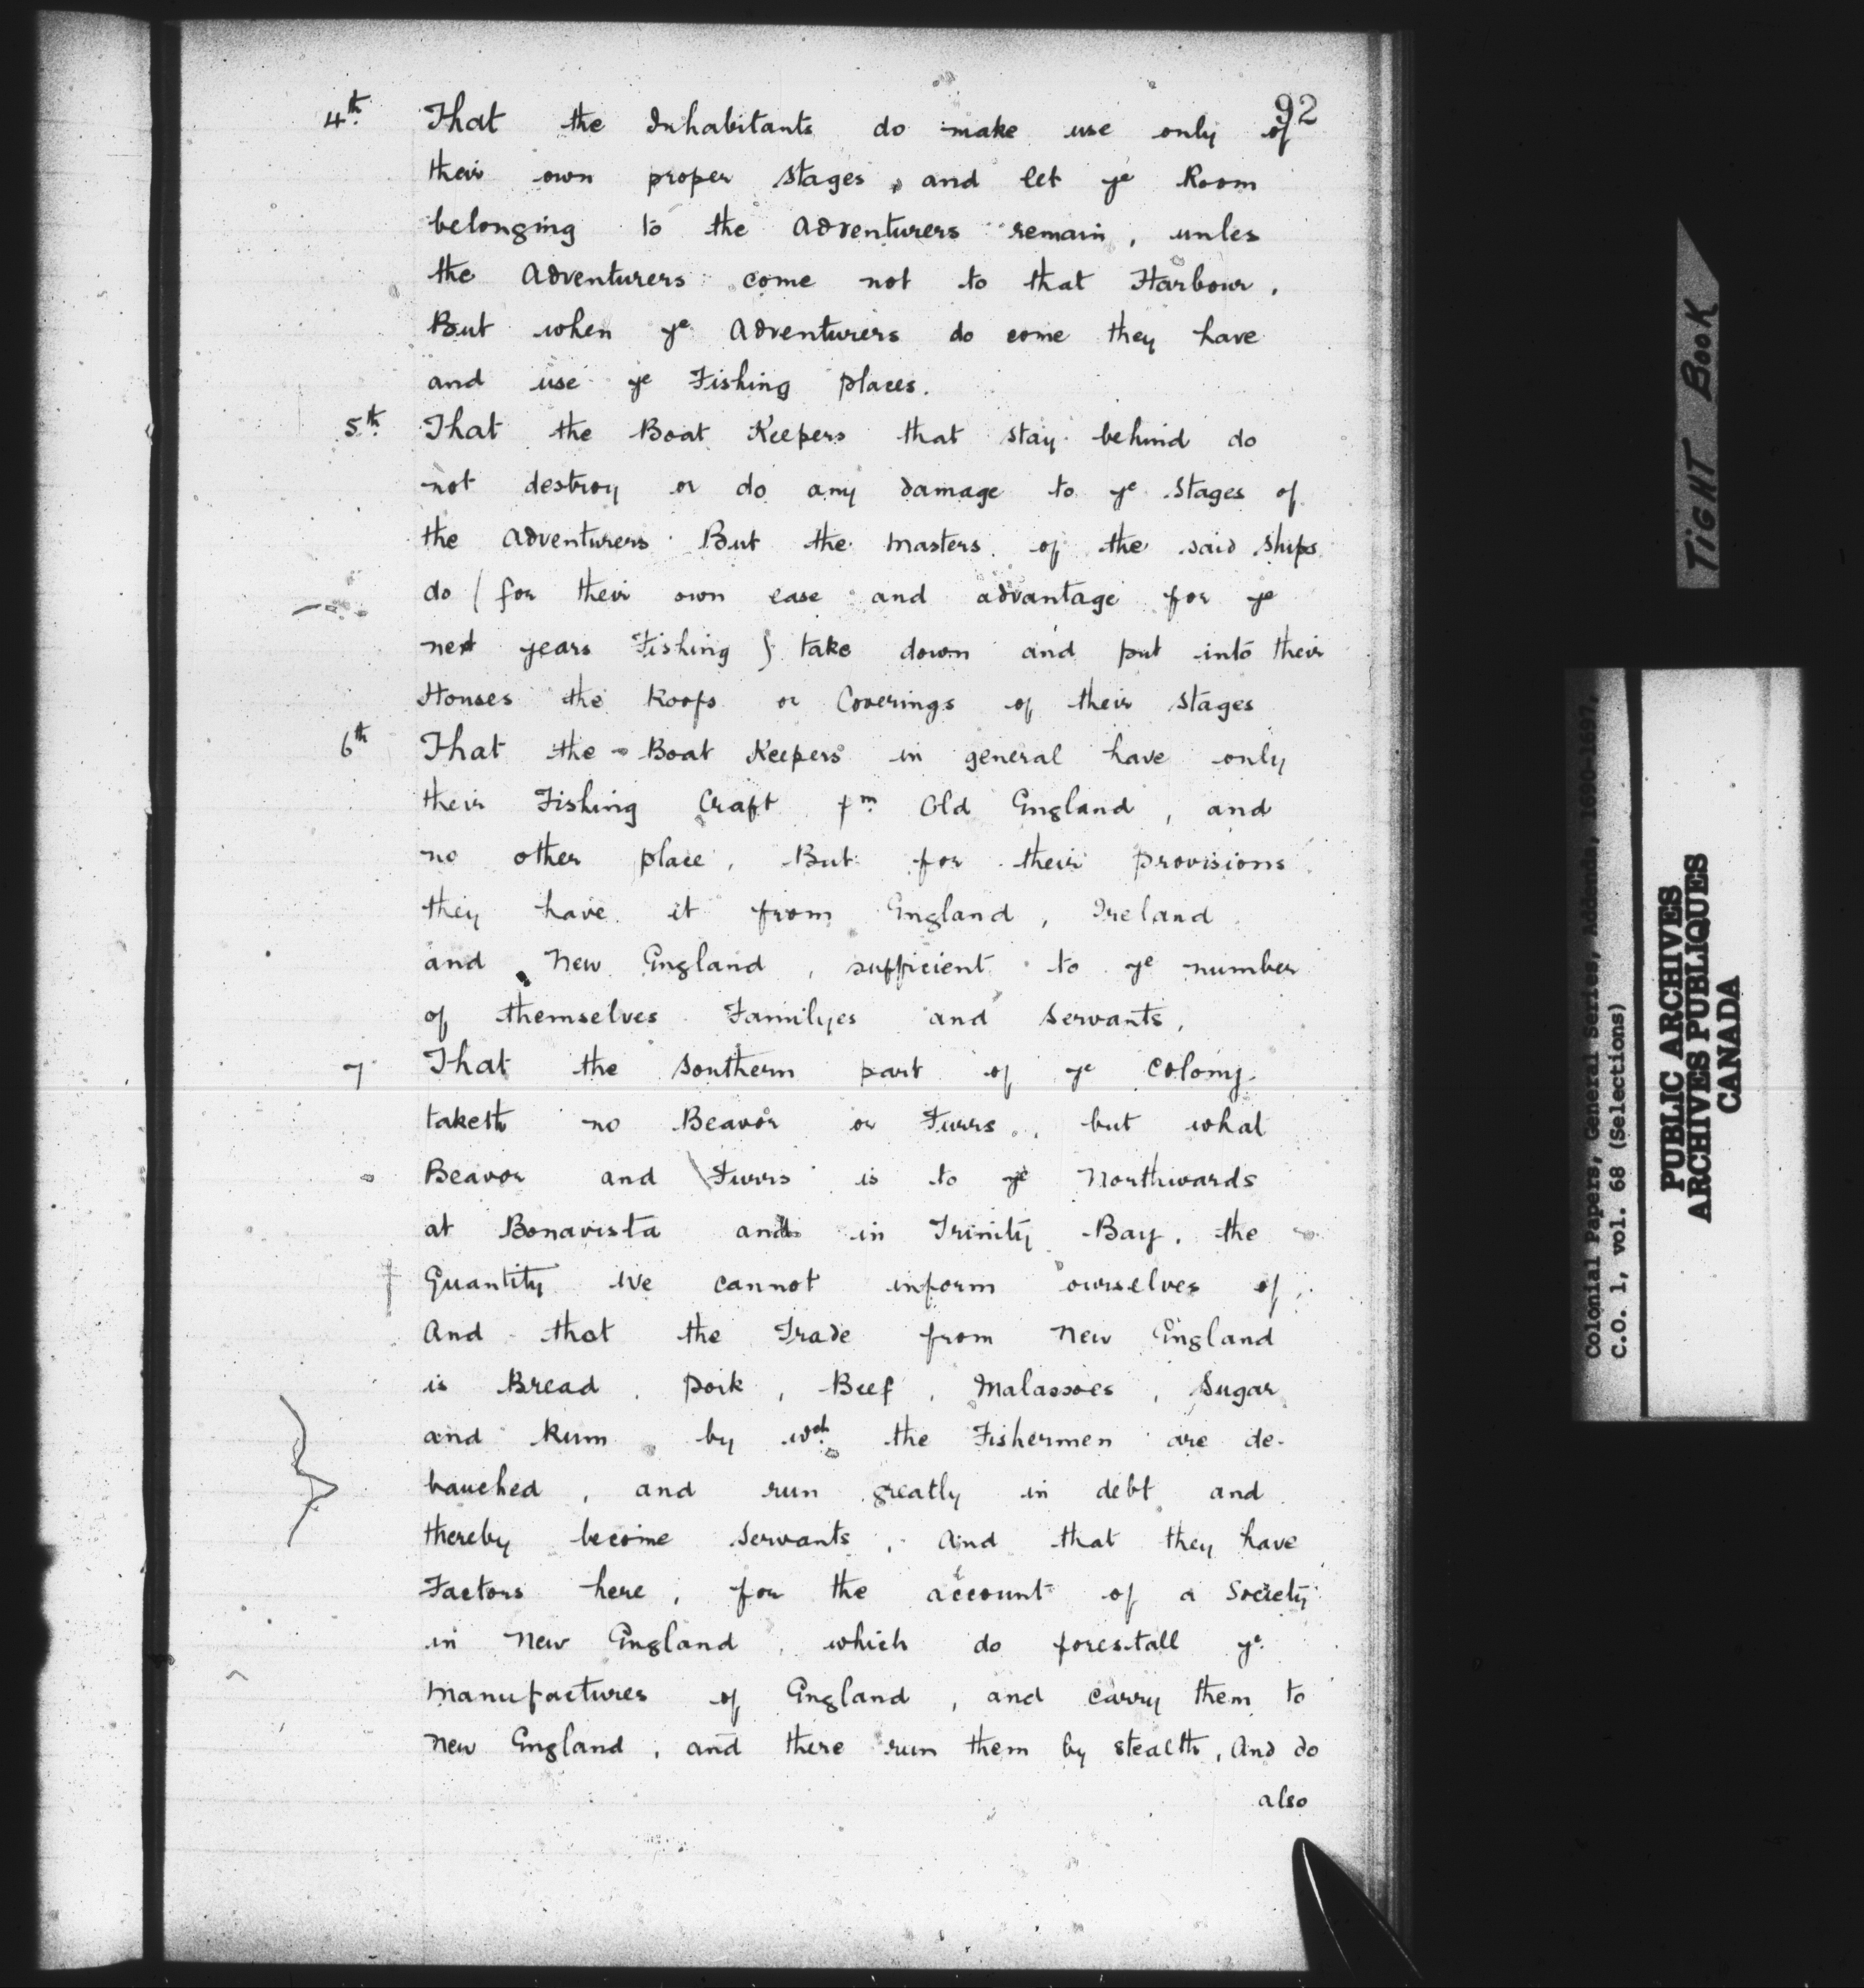 92
4th. That the Inhabitants do make use only of
their own proper stages, and let ye Room
belonging to the Adventurers remain, unles
the Adventurers come not to that Harbour.
But when ye Adventurers do come they have
and use ye Fishing places.
5th. That the Boat Keepers that stay behind do
not destroy or do any damage to ye stages of
the Adventurers But the Masters of the said ships
do (for their own ease and advantage for ye
next years Fishing) take down and put into their
Houses the Roofs or Coverings of their stages
6th That the Boat Keepers in general have only
their Fishing Craft fm Old England, and
no other place, But for their provisions
they have it from England, Ireland
and New England, sufficient to ye number
of themselves Familyes and Servants,
7 That the Southern part of ye Colony
taketh no Beavor or Furrs, but what
Beavor and Furrs is to ye Northwards
at Bonavista and in Trinity Bay, the
Quantity We cannot inform ourselves of,
And that the Trade from New England
is Bread, pork, Beef, Malassoes, Sugar
and Rum, by wch. the Fishermen are de-
bauched, and run greatly in debt and
thereby become Servants, And that they have
Factors here, for the account of a Society
in New England, which do forestall ye
Manufactures of England, and carry them to
New England, and there run them by stealth, And do
also
TIGHT BOOK
Colonial Papers, General Series, Addenda, 1690-1697,
C.O. 1, vol. 68 (Selections)
PUBLIC ARCHIVES
ARCHIVES PUBLIQUES
CANADA